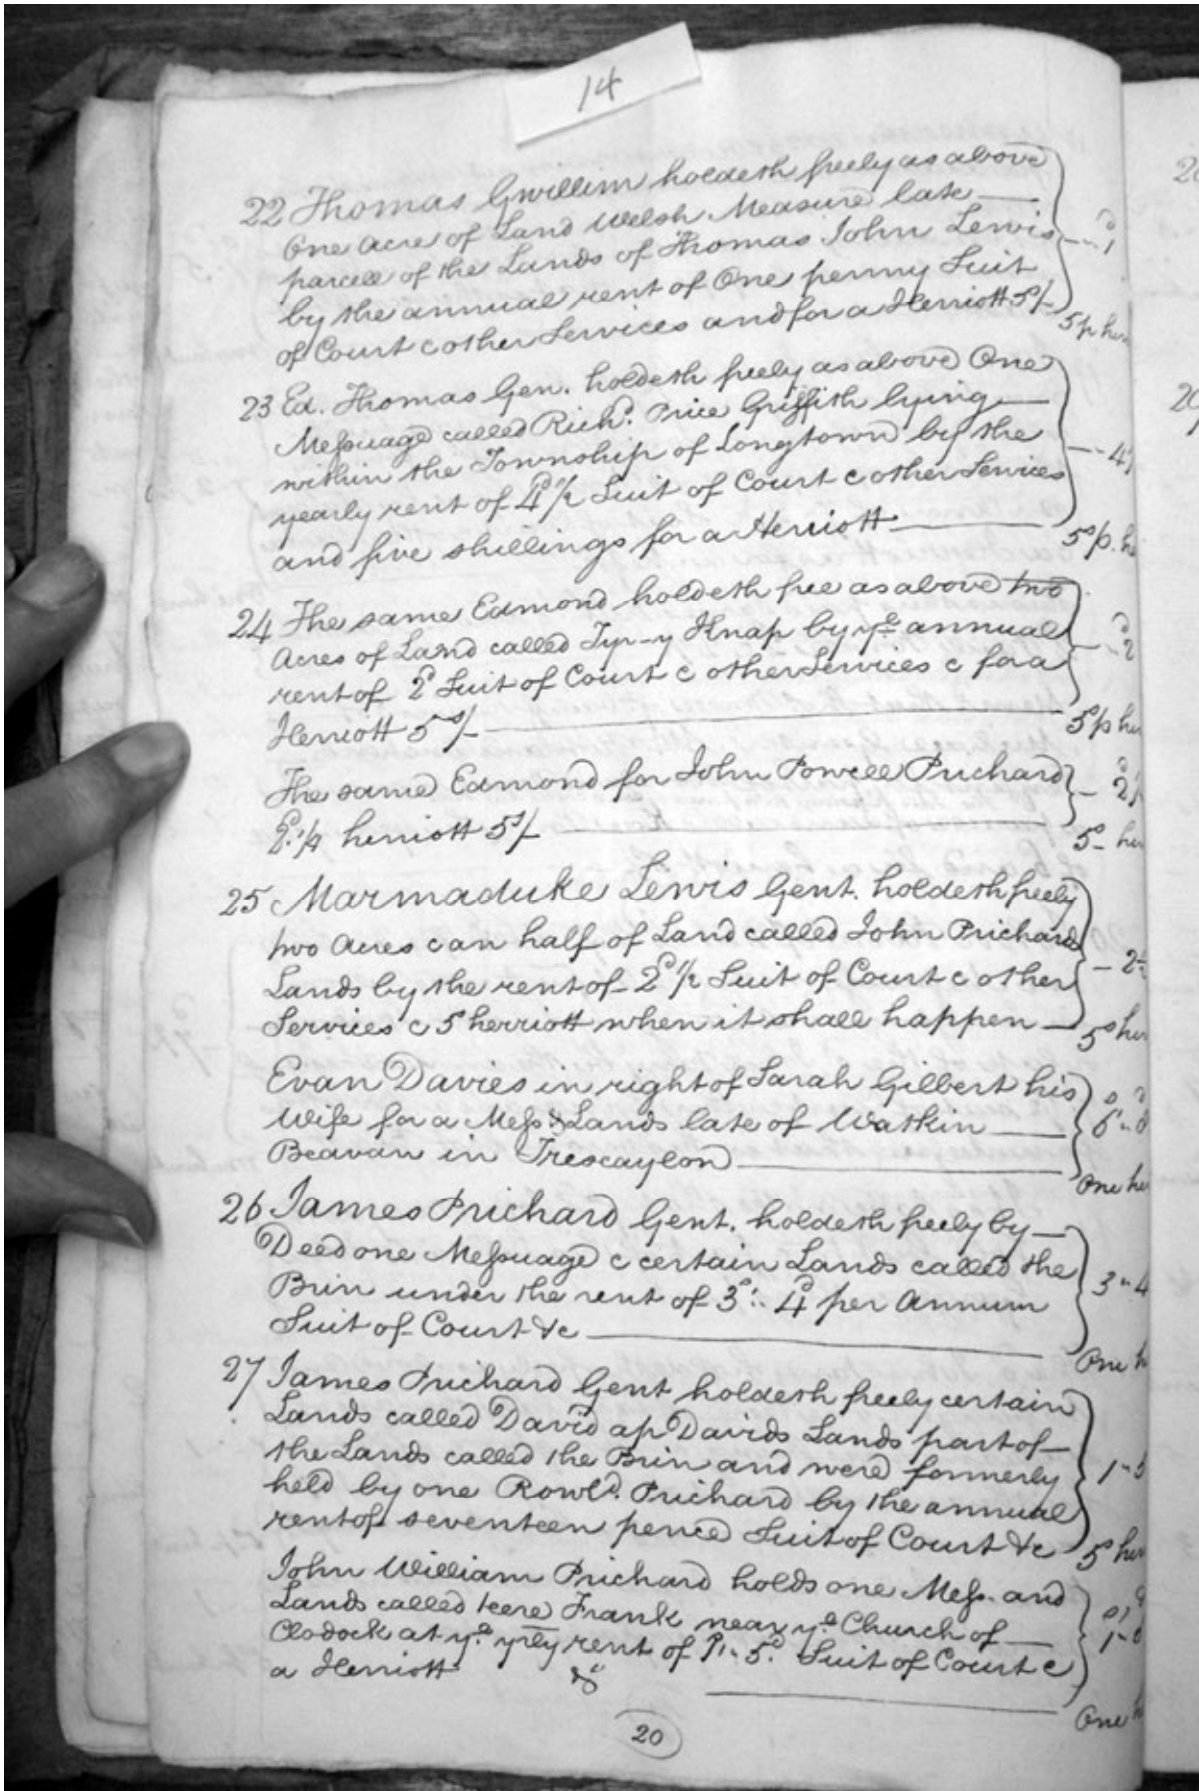 14
22 Thomas Gwillim holdeth freely as above
One Acre of Land Welsh Measure late
parcell of the Lands of Thomas John Lewis
by the annual rent of One penny Suit
of Court c other Services and for a Herriott 5/-
1d
5 p her
23 Ed. Thomas Gen. holdeth freely as above One
Meſsuage called Richd. Price Griffith lying
within the Township of Longtown by the
yearly rent of 4d 1/2 Suit of Court c other Services
and five shillings for a Herriott
4
5s p. he
24 The same Edmond holdeth free as above two
Acres of Land called Tyr-y Knap by ye annual
rent of 2d Suit of Court c other Services c for a
Herriott 5s/-
2d
5 p her
The same Edmond for John Powell Prichard
2d. 1/4 herriott 5s/-
2d
5- her
25 Marmaduke Lewis Gent. holdeth freely
two Acres c an half of Land called John Prichards
Lands by the rent of 2d 1/2 Suit of Court c other
Services c 5s herriott when it shall happen
2
5s her
Evan Davies in right of Sarah Gilbert his
Wife for a Meſs: & Lands late of Watkin
Beavan in Trescaylon
s d
6 " 8
One he
26 James Prichard Gent. holdeth freely by
Deed one Meſsuage c certain Lands called the
Brin under the rent of 3s:. 4d per Annum
Suit of Court &c
3 " 4
One h
27 James Prichard Gent holdeth freely certain
Lands called David ap Davids Lands part of
the Lands called the Brin and were formerly
held by one Rowld. Prichard by the annual
rent of seventeen pence Suit of Court &c
1 " 5
5s her
John William Prichard holds one Meſs. and
Lands called kere Frank near ye Church of
Clodock at ye yrly rent of 1s.. 5d. Suit of Court c
a Herriott
One h
20